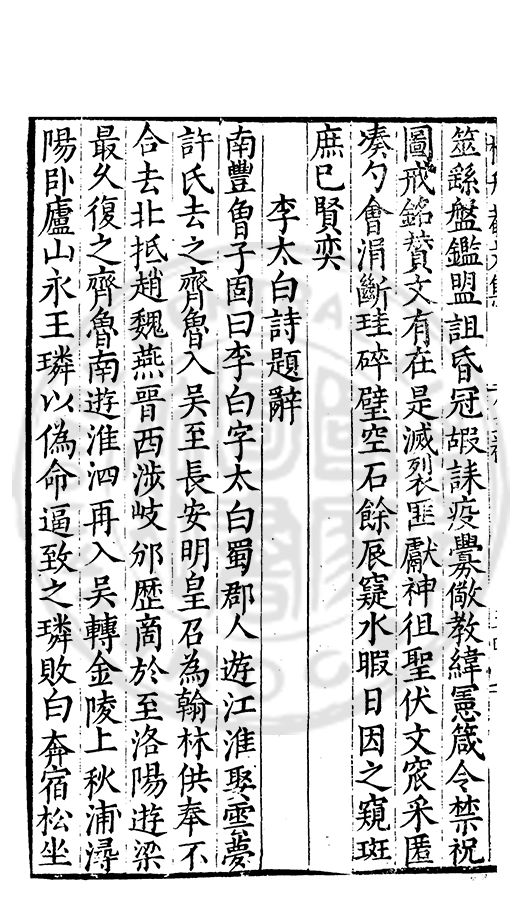 筮繇盤鑑盟詛昏冠嘏誄疫釁儆教緯憲箴令禁祝
圖戒銘贊文有在是滅裂匪獻神徂聖伏文窔采匿
湊勺會涓斷珪碎璧空石餘辰窺水暇日因之窺斑
庶已賢奕
李太白詩題辭
南豐曾子固曰李白字太白蜀郡人遊江淮娶雲夢
許氏去之齊魯入吳至長安明皇召為翰林供奉不
合去北抵趙魏燕晉西涉岐邠歷商於至洛陽遊梁
最久復之齊魯南遊淮泗再入吳轉金陵上秋浦潯
陽臥廬山永王璘以偽命逼致之璘敗白奔宿松坐